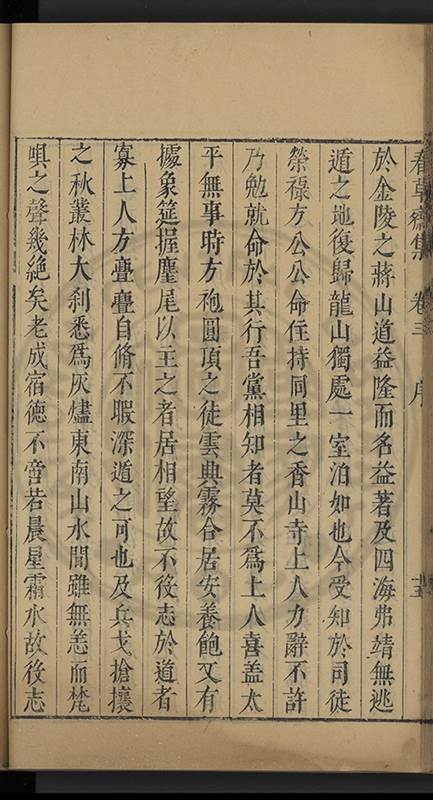 春草齋集 卷三 序
於金陵之蔣山道益隆而名益著及四海弗靖無逃
遁之地復歸龍山獨處一室泊如也今受知於司徒
榮祿方公公命住持同里之香山寺上人力辭不許
乃勉就命於其行吾黨相知者莫不爲上人喜盖太
平無事時方袍圓頂之徒雲興霧合居安養飽又有
據象筵握麈尾以主之者居相望故不後志於道者
寡上人方亹亹自脩不暇深遁之可也及兵戈搶攘
之秋叢林大刹悉爲灰燼東南山水間雖無恙而梵
唄之聲幾絶矣老成宿德不啻若晨星霜水故後志